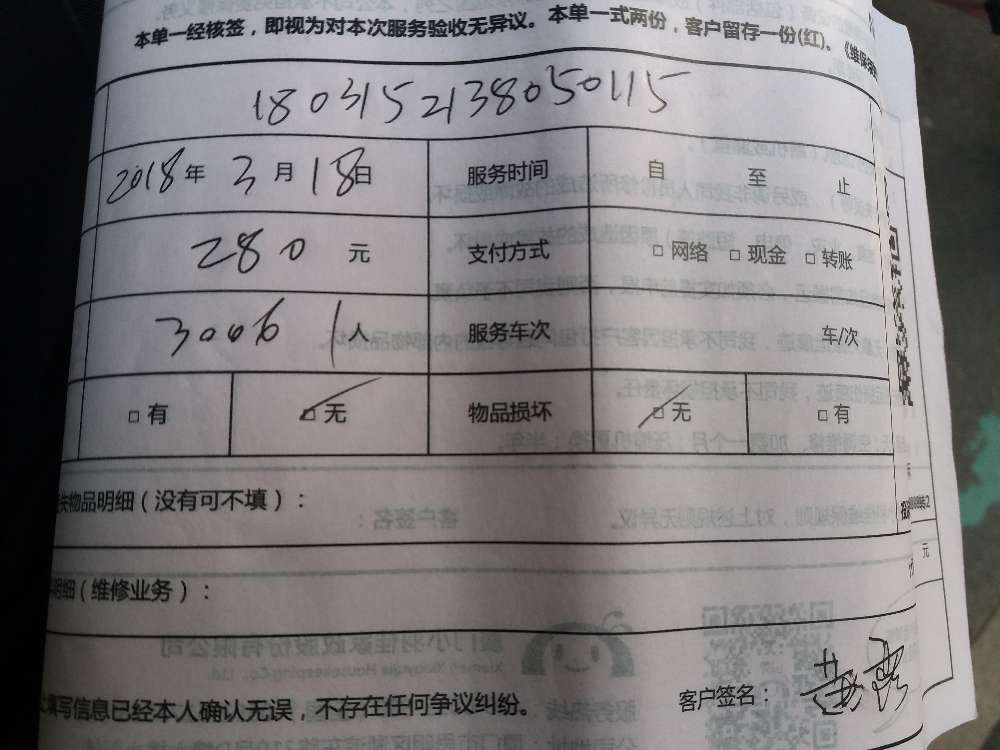 本单一经核签，即视为对本次服务验收无异议。本单一式两份，客户留存一份(红)。《维保
1803152138050115
2018年3月18日 服务时间 自 至 止
280 元 支付方式 □网络 □现金 □转账
3006 1人 服务车次 车/次
□有 □无 物品损坏 □无 □有
失物品明细（没有可不填）：
明细（维修业务）：
填写信息已经本人确认无误，不存在任何争议纠纷。 客户签名：